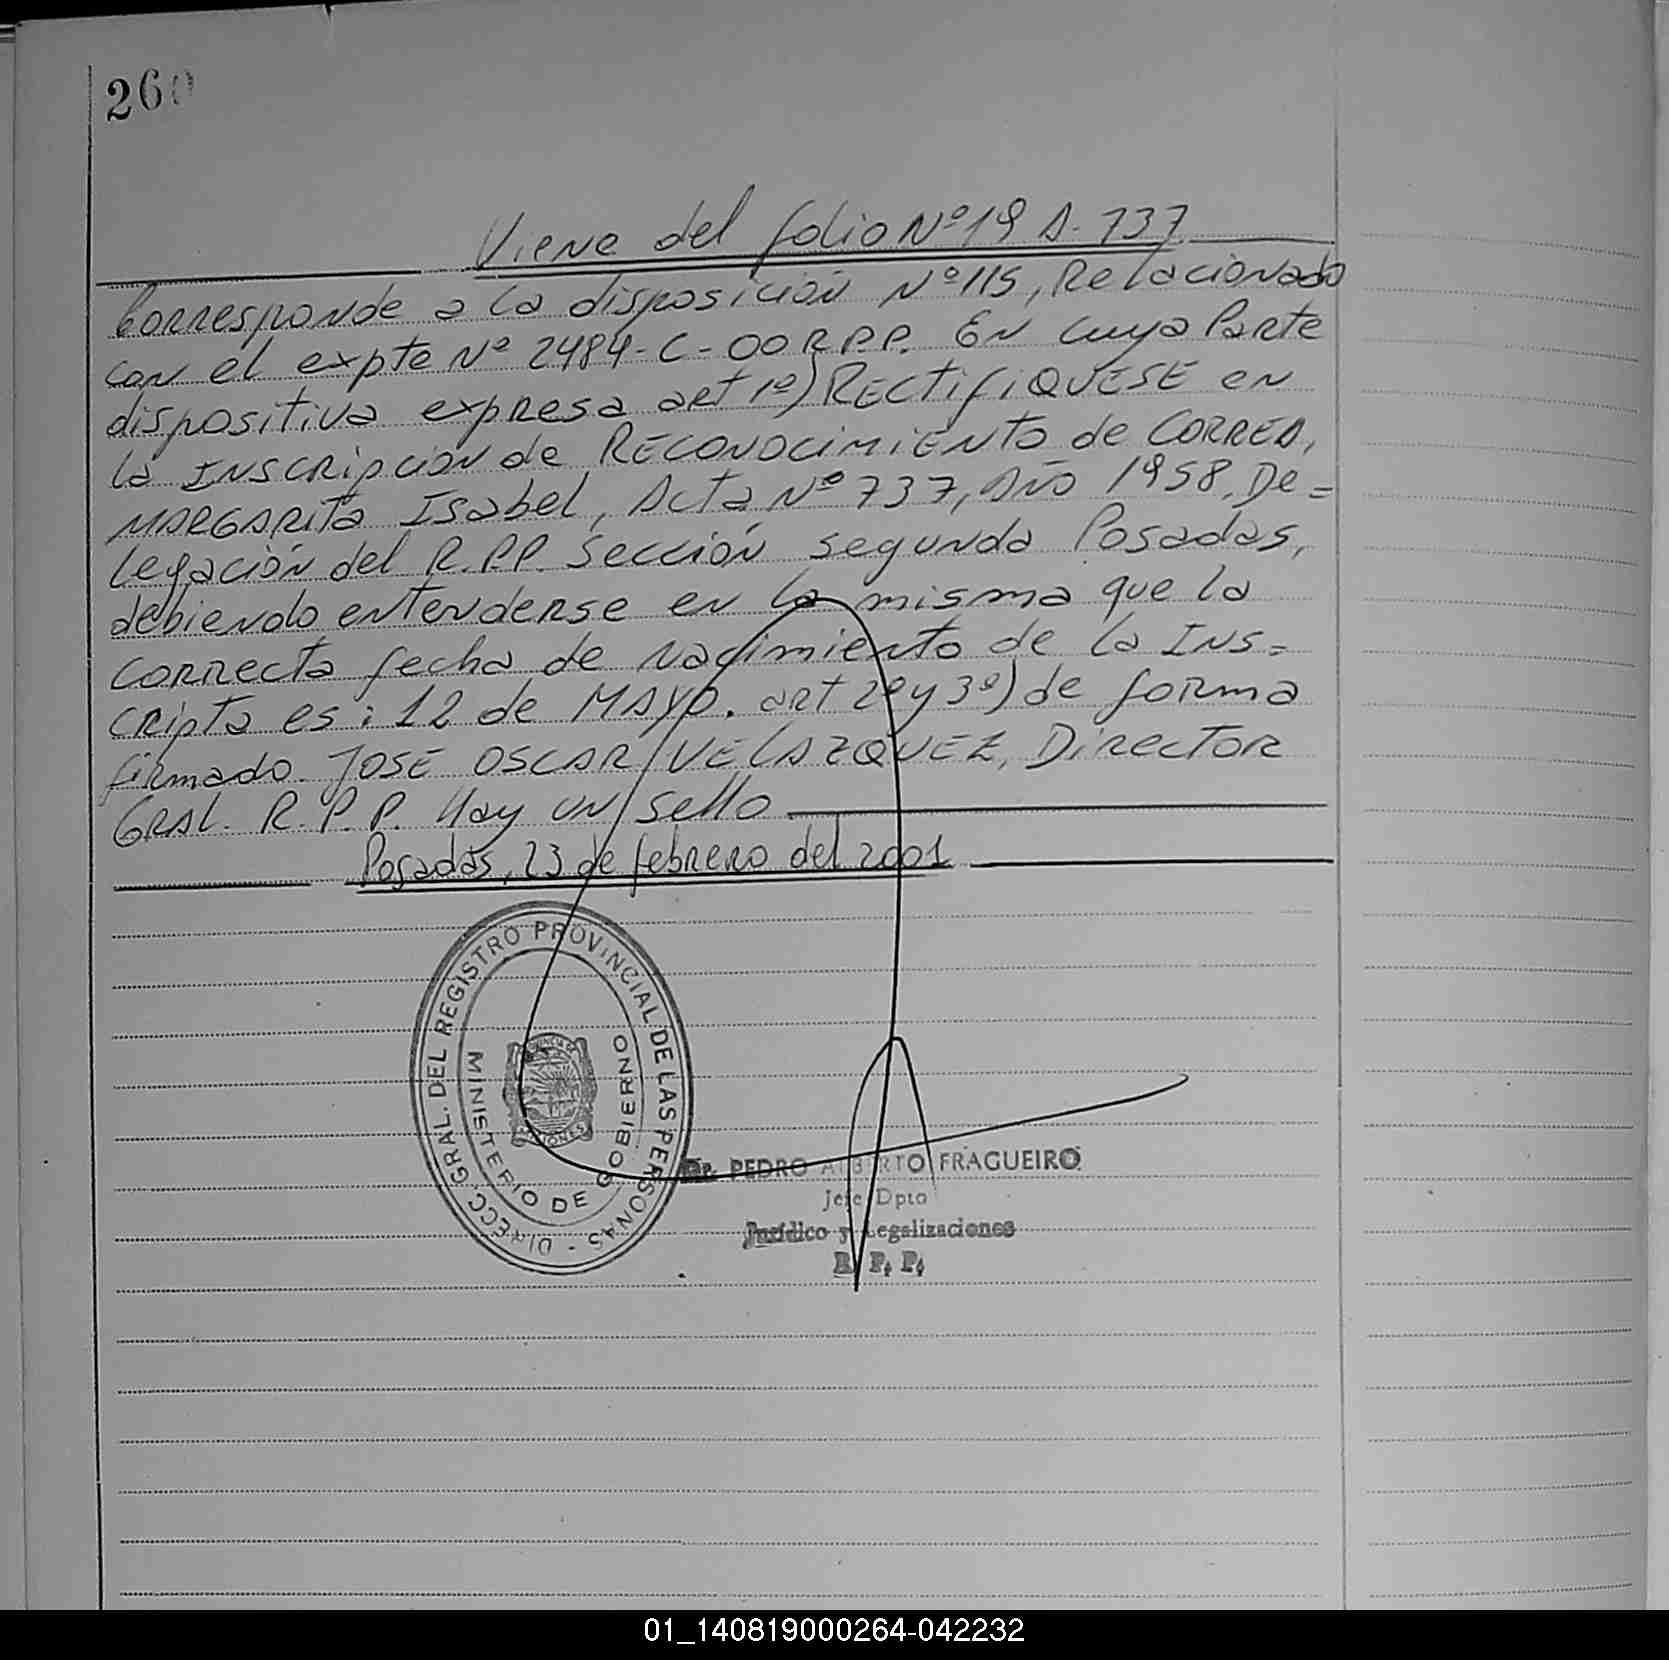 260
Viene del folio Nº 19 A. 737
Corresponde a la disposición Nº 115, Relacionado
con el expte Nº 2484-C-00 R.P.P. En cuya Parte
dispositiva expresa art 1º) RECTIFIQUESE en
la INSCRIPCIÓN de RECONOCIMIENTO de CORREA,
MARGARITA Isabel, Acta Nº 737, Año 1958, De=
legación del R.P.P. Sección segunda Posadas,
debiendo entenderse en la misma que la
correcta fecha de nacimiento de la INS=
cripta es: 12 de MAYO. art 2º y 3º) de forma
firmado. JOSE OSCAR VELAZQUEZ, DIRECTOR
GRAL. R.P.P. Hay un sello
Posadas, 23 de febrero del 2001
DIRECC. GRAL. DEL REGISTRO PROVINCIAL DE LAS PERSONAS -
MINISTERIO DE GOBIERNO
PROVINCIA DE
MISIONES
Dr. PEDRO ALBERTO FRAGUEIRO
Jefe Dpto
Jurídico y Legalizaciones
R. P. P.
01_140819000264-042232